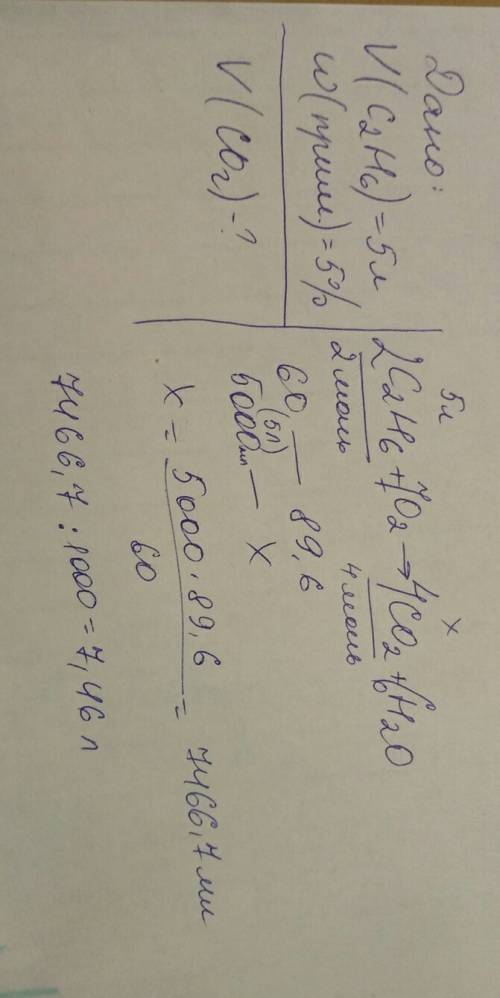 Дано:
V(C2H6)=5л
w(прим.)=5%
V(CO2)-?
5л x
2C2H6+7O2→4CO2+6H2O
2моль 4моль
60 — 89,6
(5л)
5000мл — x
x = 5000·89,6 / 60 = 7466,7 мл
7466,7 : 1000 = 7,46 л